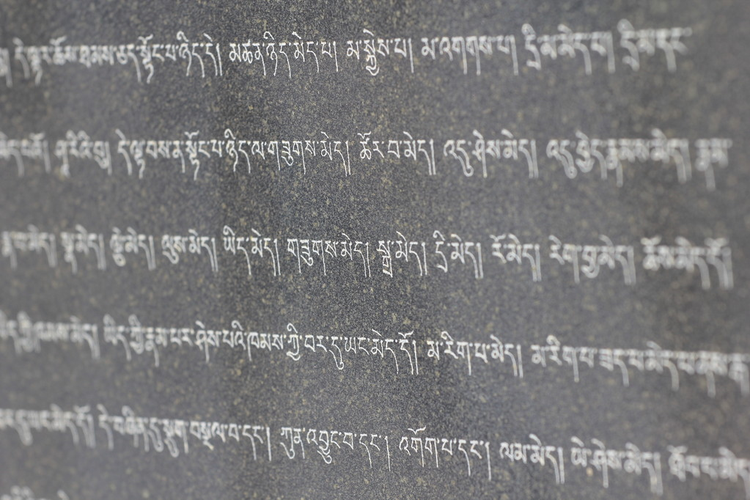 དེ་ལྟར་ཆོས་ཐམས་ཅད་སྟོང་པ་ཉིད་དེ། མཚན་ཉིད་མེད་པ། མ་སྐྱེས་པ། མ་འགགས་པ། དྲི་མ་མེད་པ། དྲི་མ་དང་
མེད་པའོ། ཤཱ་རིའི་བུ། དེ་ལྟ་བས་ན་སྟོང་པ་ཉིད་ལ་གཟུགས་མེད། ཚོར་བ་མེད། འདུ་ཤེས་མེད། འདུ་བྱེད་རྣམས་མེད། རྣམ་
རྣ་བ་མེད། སྣ་མེད། ལྕེ་མེད། ལུས་མེད། ཡིད་མེད། གཟུགས་མེད། སྒྲ་མེད། དྲི་མེད། རོ་མེད། རེག་བྱ་མེད། ཆོས་མེད་དོ།
མིག་གི་ཁམས་མེད། ཡིད་ཀྱི་རྣམ་པར་ཤེས་པའི་ཁམས་ཀྱི་བར་དུ་ཡང་མེད་དོ། མ་རིག་པ་མེད། མ་རིག་པ་ཟད་པ་མེད་པ་ནས་
བར་དུ་ཡང་མེད་དོ། དེ་བཞིན་དུ་སྡུག་བསྔལ་བ་དང་། ཀུན་འབྱུང་བ་དང་། འགོག་པ་དང་། ལམ་མེད། ཡེ་ཤེས་མེད། ཐོབ་པ་མེད།